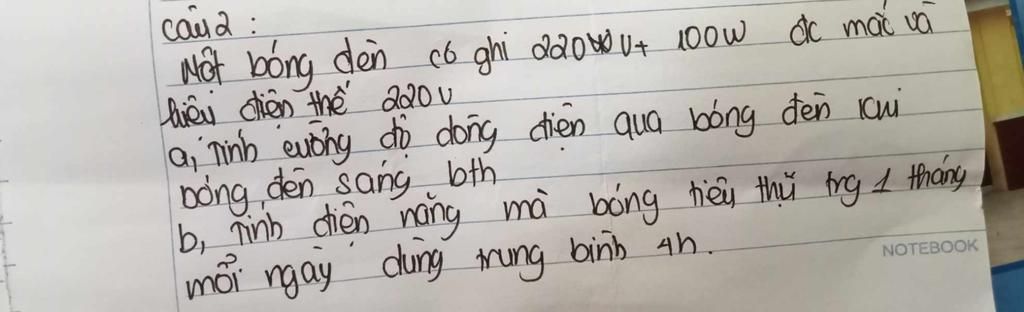 câu 2 :
Một bóng đèn có ghi 220V+ 100W đc mắc và
hiệu điện thế 220V
a, Tính cường độ dòng điện qua bóng đèn khi
bóng đèn sáng bth
b, Tính điện năng mà bóng tiêu thụ trg 1 tháng
mỗi ngày dùng trung bình 4h.
NOTEBOOK